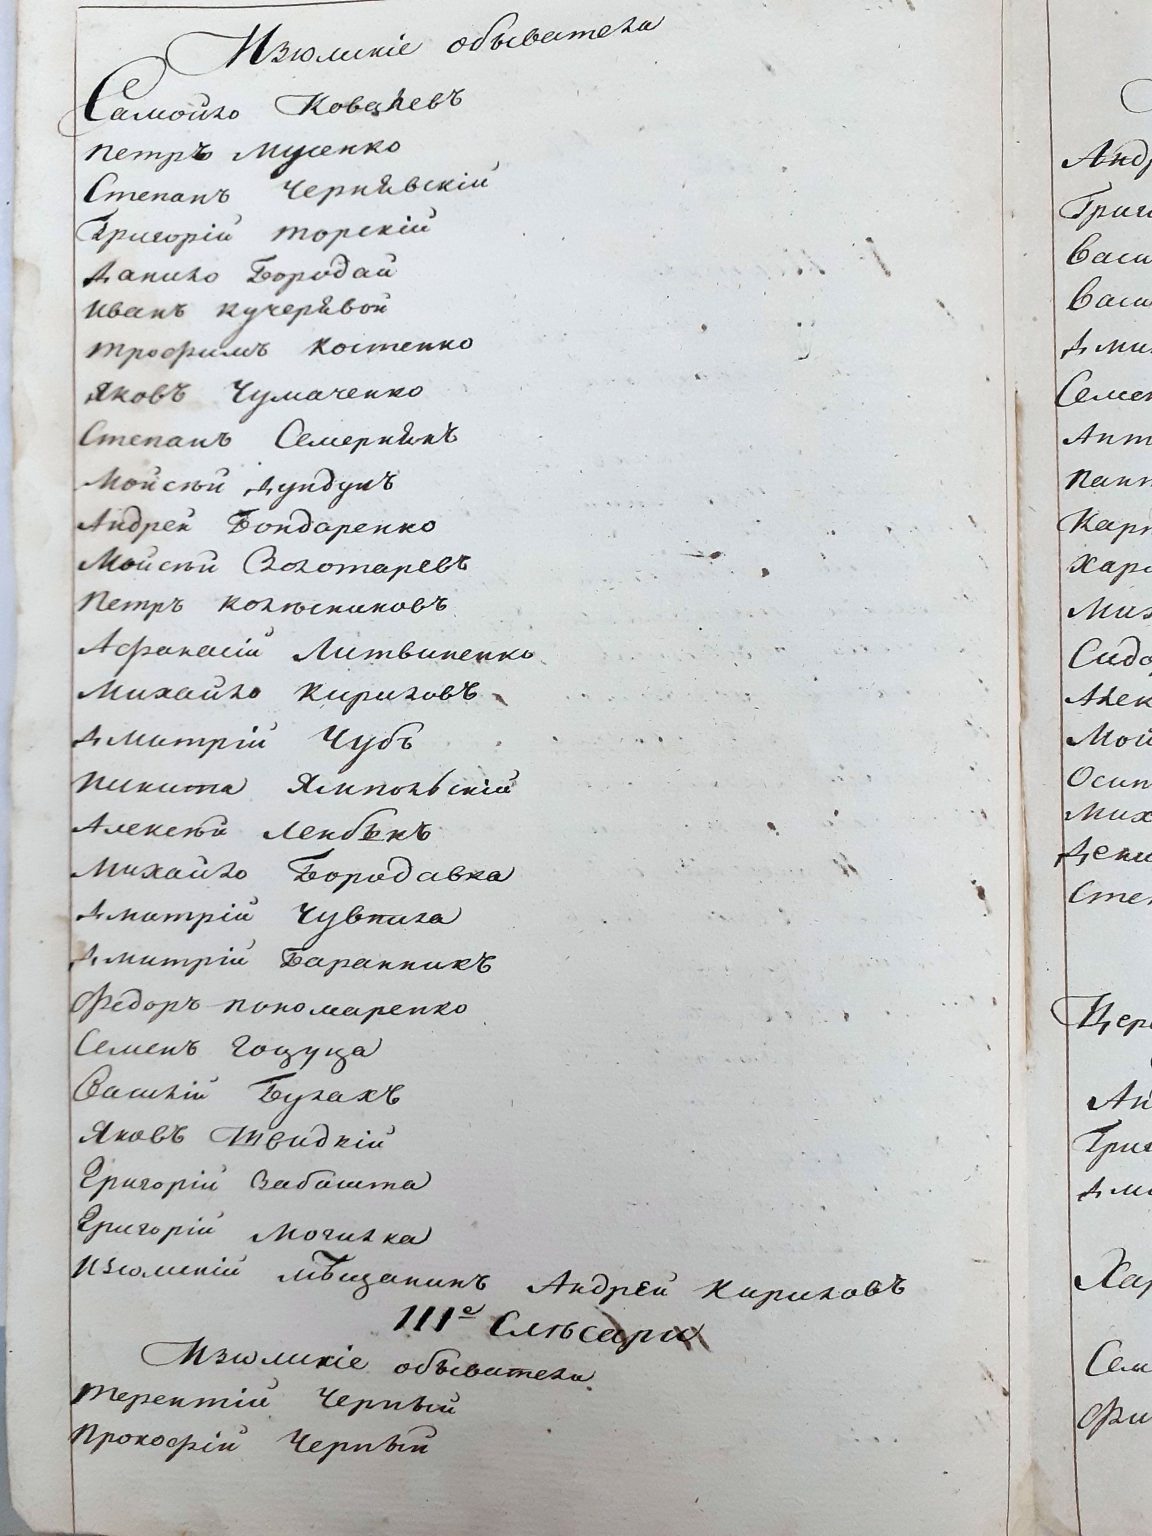 Изюмскіе обыватели
Самойло Ковалевъ
Петръ Мусенко
Степанъ Чернявскій
Григорій Торскій
Данило Бородай
Иванъ Кучерявой
Трофимъ Костенко
Яковъ Чумаченко
Степанъ Семернянъ
Мойсѣй Дундукъ
Андрей Бондаренко
Мойсѣй Золотаревъ
Петръ Колѣсниковъ
Афанасій Литвиненко
Михайло Кириловъ
Дмитрій Чубъ
Никита Ямпольскій
Алексѣй
Михайло Бородавка
Дмитрій Чувпила
Дмитрій Баранникъ
Федоръ Пономаренко
Семенъ Гоцуца
Василій Булахъ
Яковъ Швидкій
Григорій Забашта
Григорій Могилка
Изюмскій мѣщанинъ Андрей Кириловъ
IIIе Слѣсари
Изюмскіе обыватели
Терентій Черный
Прокофій Черный
Андр
Григ
Васи
Васи
Дми
Семен
Ант
Пант
Карп
Хар
Мих
Сидо
Алек
Мой
Осип
Мих
Дени
Степ
Цер
Ан
Григ
Дми
Хар
Сем
Фи